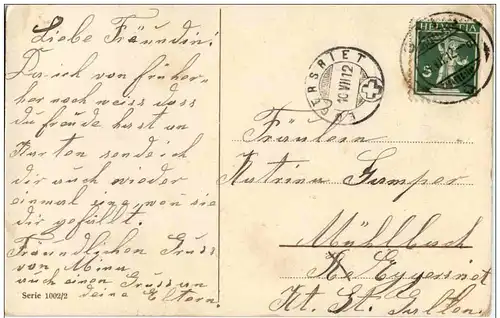 Liebe Fräundin!
Da ich von früher-
her noch weiss dass
du fräude hast an
Karten sende ich
dir auch wieder
einmal eine, wen sie
dir gefällt.
Fräundlichen Gruss
von Mina
auch einen Gruss an
deine Eltern.
Serie 1002/2
HELVETIA
5
EGGERSRIET
10 VII 12
Fräulein
Katrina Gamper
Mühlbach
Eggersriet
Kt. St. Gallen